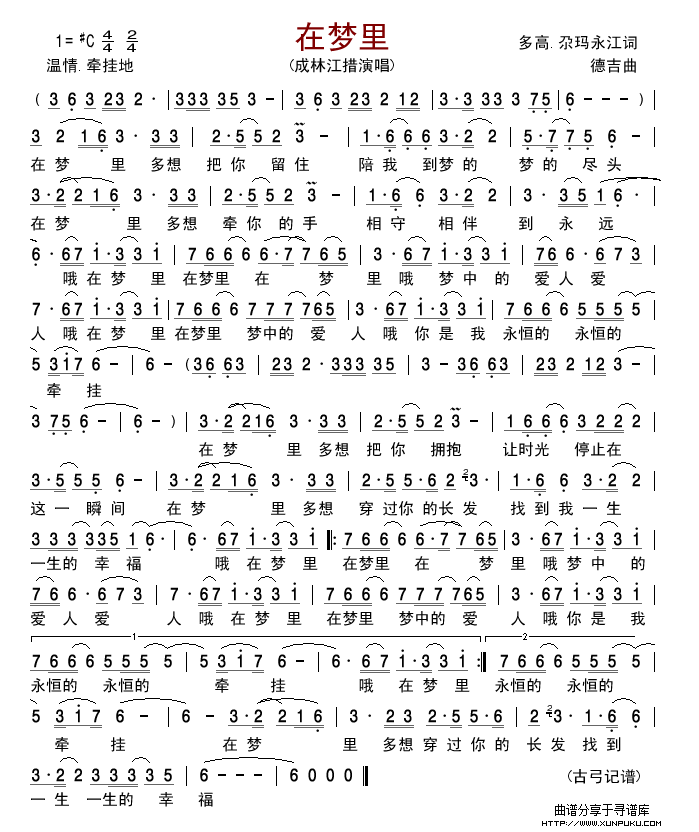 1= #C 4/4 2/4
在梦里
多高.尕玛永江词
温情.牵挂地
(成林江措演唱)
德吉曲
( 3 6 3 23 2 · | 333 35 3 - | 3 6 3 23 2 12 | 3 · 3 33 3 75 | 6 - - - ) |
3 2 16 3 · 3 3 | 2 · 5 5 2 3 - | 1 · 6 6 6 3 · 2 2 | 5 · 7 7 5 6 - |
在梦 里 多想 把你 留住 陪我 到梦的 梦的 尽头
3 · 2 2 1 6 3 · 3 3 | 2 · 5 5 2 3 - | 1 · 6 6 3 · 2 2 | 3 · 3 5 1 6 · |
在梦 里 多想 牵你 的手 相守 相伴 到 永远
6 · 67 1 · 3 3 1 | 7 6 6 6 6 · 7 7 6 5 | 3 · 67 1 · 3 3 1 | 7 6 6 · 6 7 3 |
哦在梦 里在梦里 在 梦 里哦 梦中 的 爱人爱
7 · 67 1 · 3 3 1 | 7 6 6 6 7 7 7 765 | 3 · 67 1 · 3 3 1 | 7 6 6 6 5 5 5 5 |
人哦在梦 里在梦里 梦中的 爱 人哦你是 我 永恒的 永恒的
5 317 6 - | 6 - (36 63 | 23 2 · 333 35 | 3 - 36 63 | 23 2 12 3 - |
牵 挂
3 75 6 - | 6 - ) | 3 · 2 216 3 · 3 3 | 2 · 5 5 2 3 - | 1 6 6 6 3 2 2 2 |
在梦 里 多想 把你 拥抱 让时光 停止在
3 · 5 5 5 6 - | 3 · 2 2 2 1 6 3 · 3 3 | 2 · 5 5 · 6 2 3 · | 1 · 6 6 3 · 2 2 |
这一 瞬间 在梦 里 多想 穿过你的长发 找到我一生
3 3 3 335 1 6 · | 6 · 67 1 · 3 3 1 |: 7 6 6 6 6 · 7 7 6 5 | 3 · 67 1 · 3 3 1 |
一生的 幸 福 哦在梦 里 在梦里 在 梦 里哦梦 中 的
7 6 6 · 6 7 3 | 7 · 67 1 · 3 3 1 | 7 6 6 6 7 7 7 765 | 3 · 67 1 · 3 3 1 |
爱人 爱 人哦在 梦 里 在梦里 梦中的 爱 人哦你是 我
1 2
7 6 6 6 5 5 5 5 | 5 317 6 - | 6 · 67 1 · 3 3 1 :| 7 6 6 6 5 5 5 5 |
永恒的 永恒的 牵 挂 哦在梦 里 永恒的 永恒的
5 3 1 7 6 - | 6 - 3 · 2 2 2 1 6 | 3 · 3 3 2 · 5 5 · 6 | 2 3 · 1 · 6 6 |
牵 挂 在梦 里 多想穿过你的 长发 找到
3 · 2 2 3 3 3 335 | 1 6 · | 6 - - - | 6 0 0 0 ‖
(古弓记谱)
一生 一生的 幸 福
曲谱分享于寻谱库
HTTP://WWW.XUNPUKU.COM